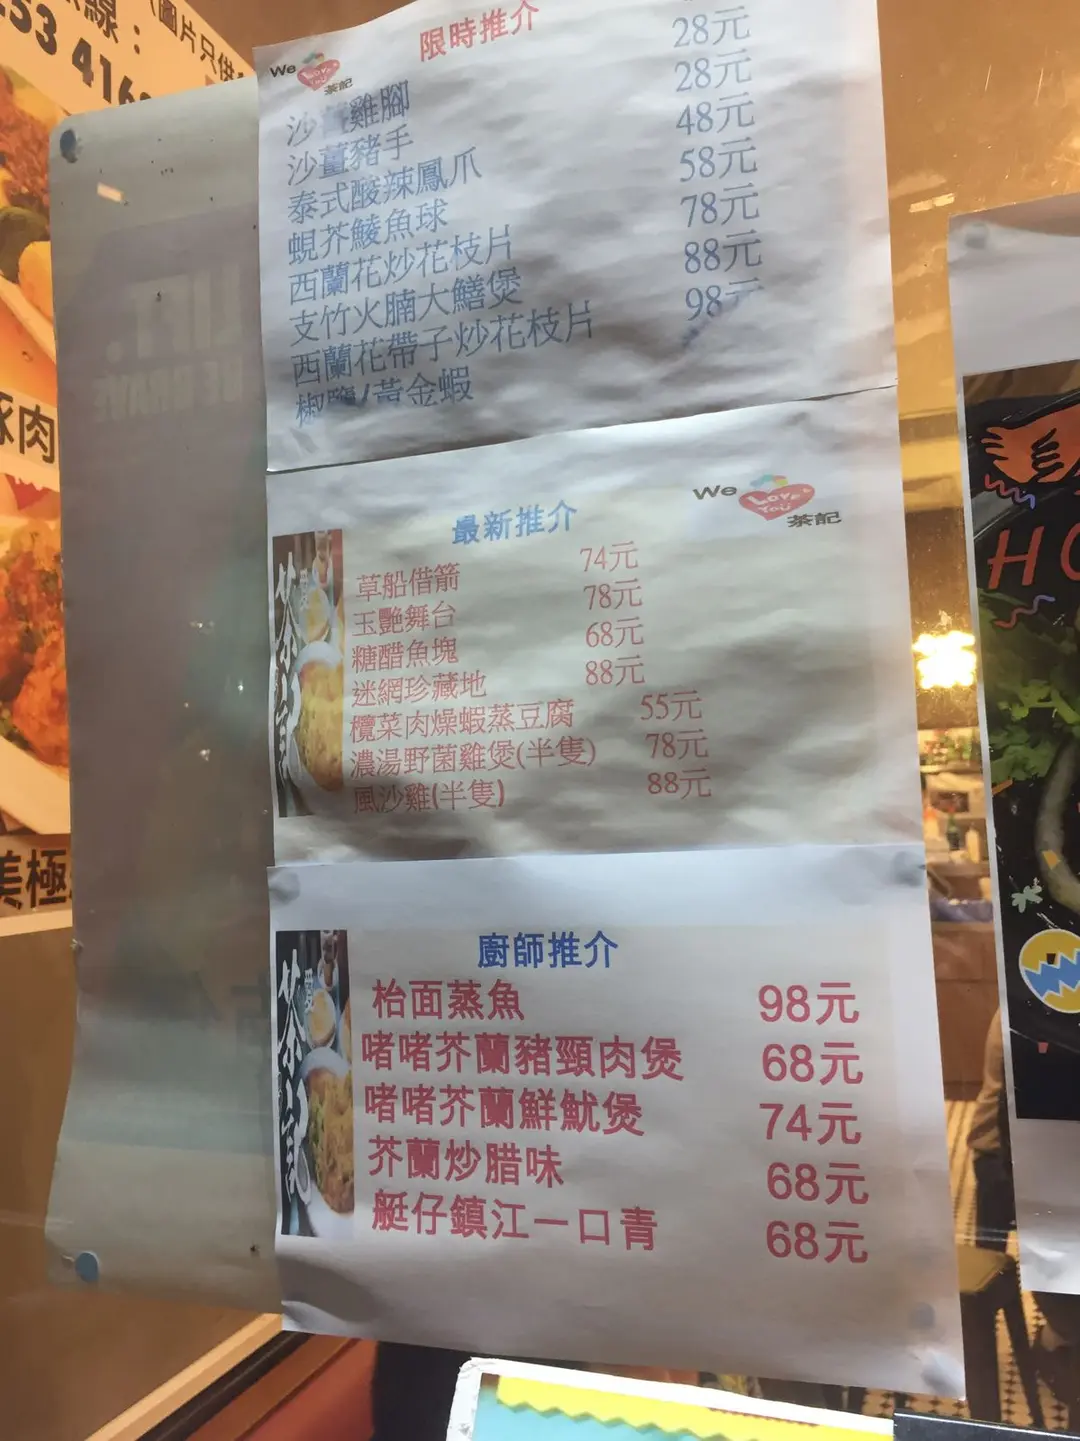 線：
(圖片只供
253 416
豕肉
美極
限時推介
We Love You 茶記
沙薑雞腳
沙薑豬手 28元
泰式酸辣鳳爪 28元
蜆芥鯪魚球 48元
西蘭花炒花枝片 58元
支竹火腩大鱔煲 78元
西蘭花帶子炒花枝片 88元
椒鹽/黃金蝦 98元
We Love You 茶記
最新推介
草船借箭 74元
玉艷舞台 78元
糖醋魚塊 68元
迷網珍藏地 88元
欖菜肉燥蝦蒸豆腐 55元
濃湯野菌雞煲(半隻) 78元
風沙雞(半隻) 88元
茶記
廚師推介
枱面蒸魚 98元
啫啫芥蘭豬頸肉煲 68元
啫啫芥蘭鮮魷煲 74元
芥蘭炒腊味 68元
艇仔鎮江一口青 68元
茶記
HO